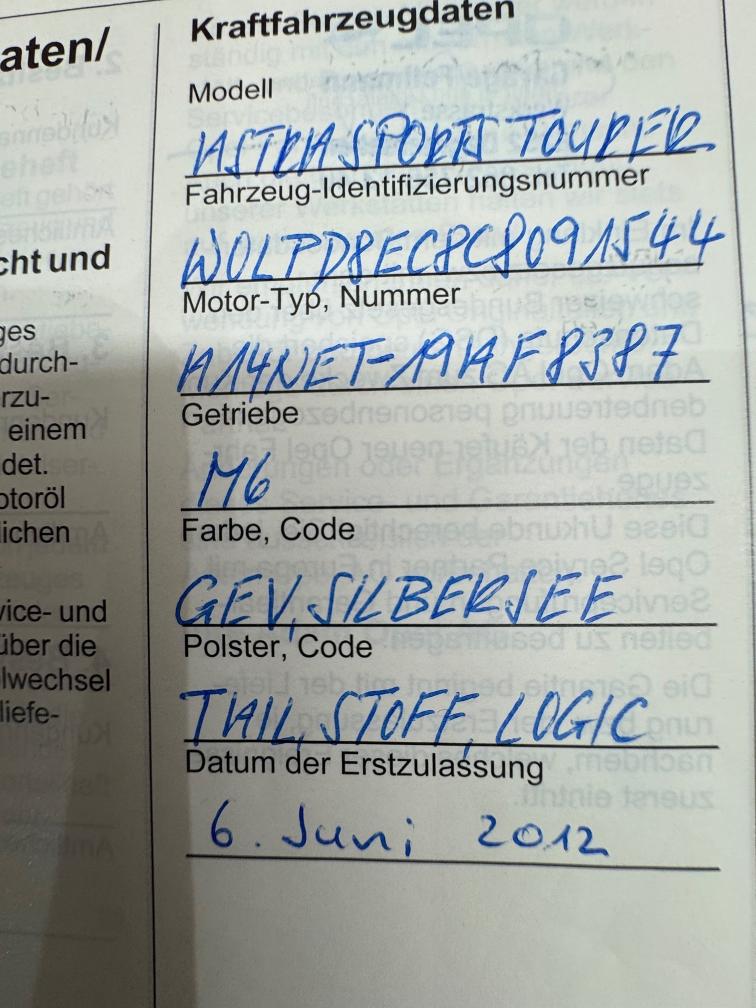 aten/
cht und
ges
durch-
rzu-
einem
det.
otoröl
lichen
vice- und
über die
lwechsel
liefe-
Kraftfahrzeugdaten
Modell
ASTRA SPORTS TOURER
Fahrzeug-Identifizierungsnummer
W0LPD8EC8C8091544
Motor-Typ, Nummer
A14NET-19AF8387
Getriebe
M6
Farbe, Code
GEV, SILBERSEE
Polster, Code
TAIL, STOFF, LOGIC
Datum der Erstzulassung
6. Juni 2012